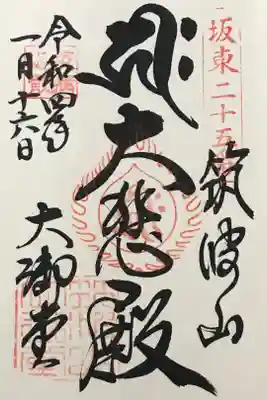 坂東二十五
筑波山
大悲殿
令和四年
一月十六日
大御堂